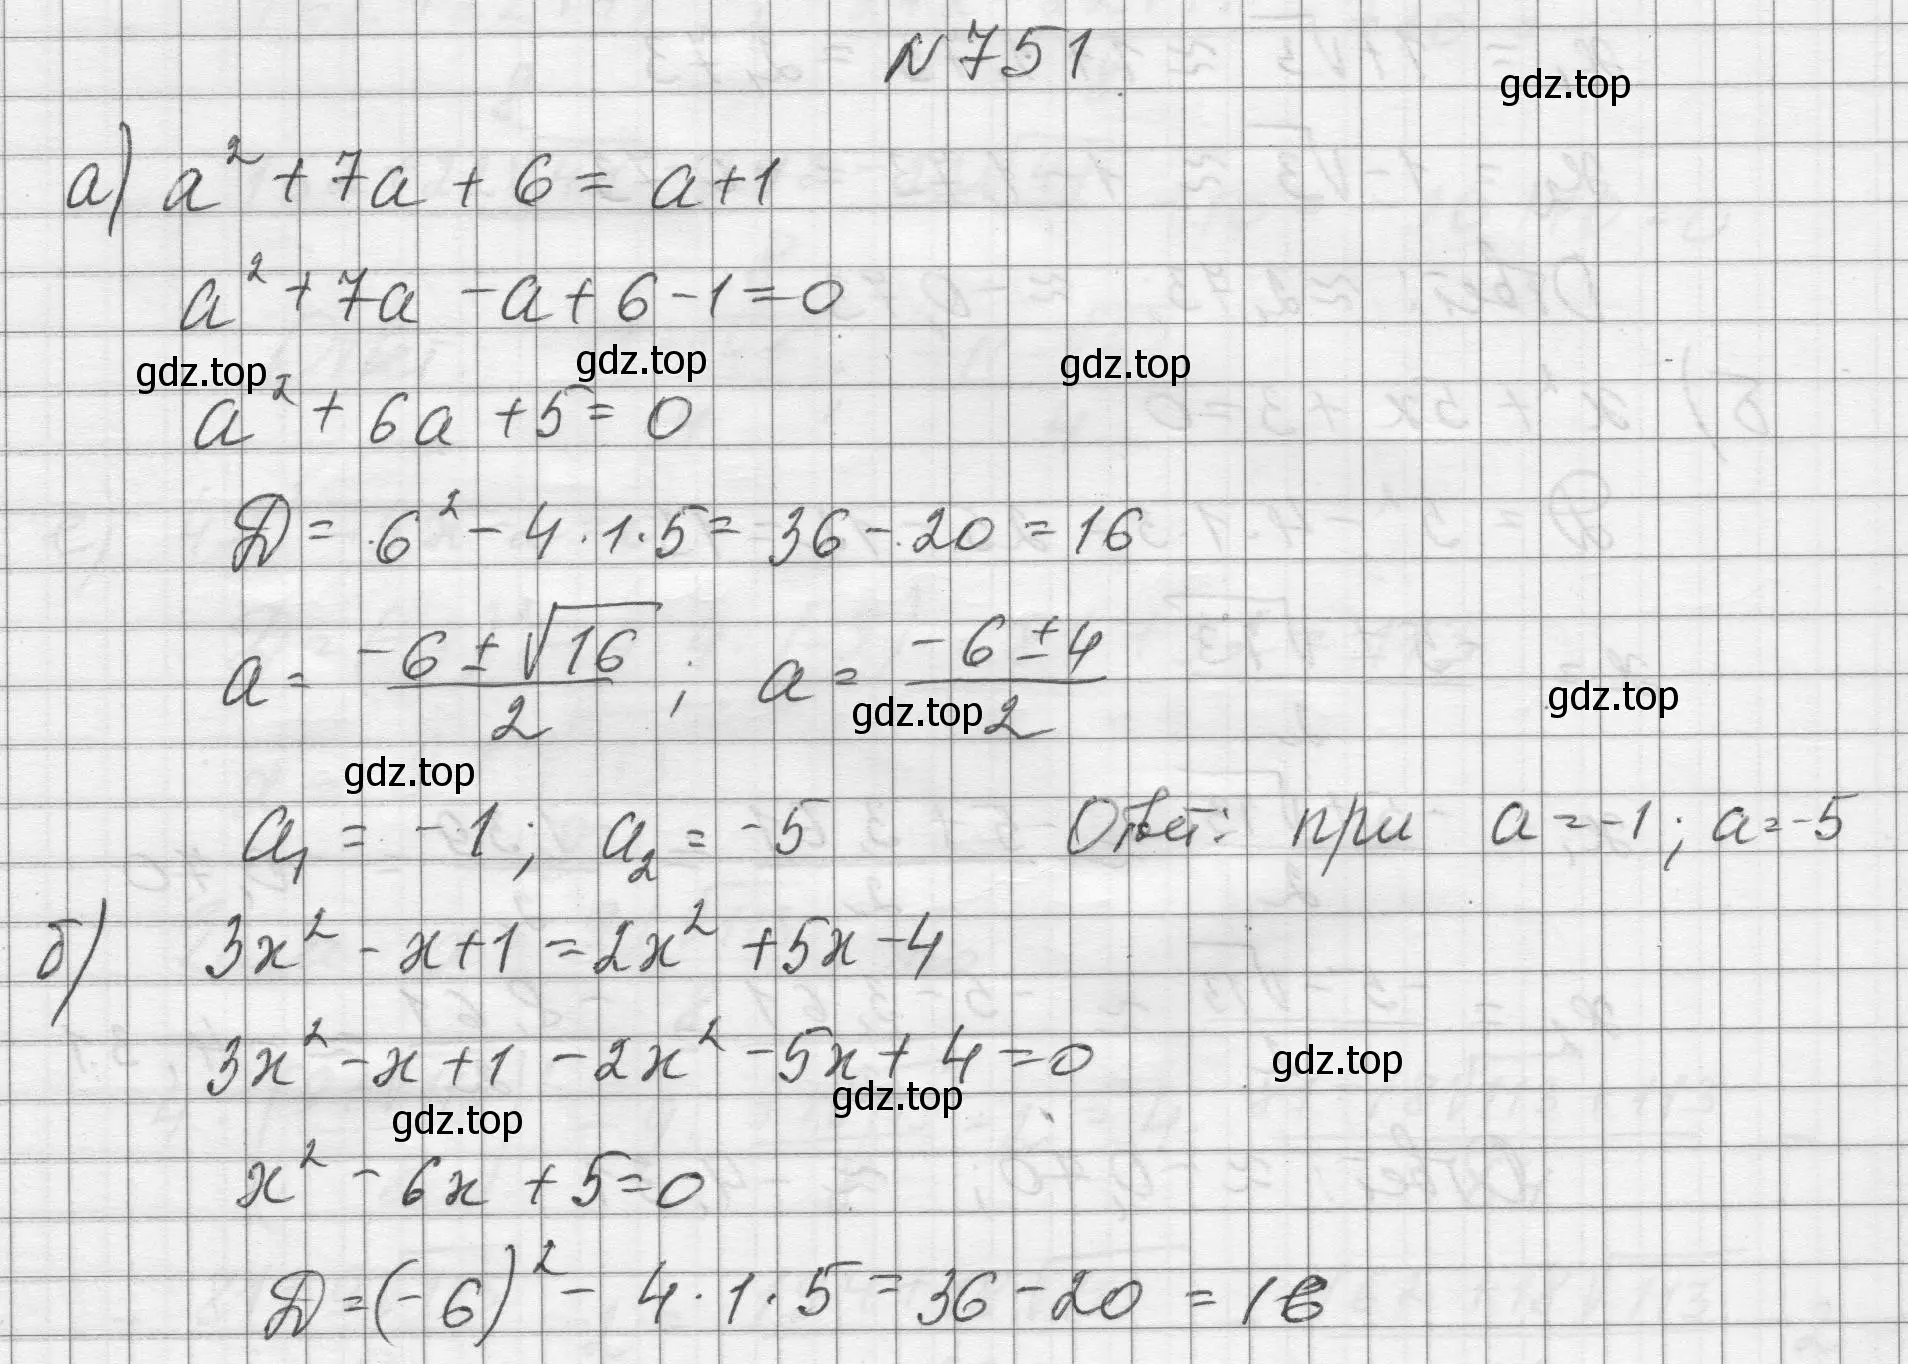 N 751
gdz.top
а) a² + 7a + 6 = a + 1
a² + 7a - a + 6 - 1 = 0
gdz.top gdz.top gdz.top
a² + 6a + 5 = 0
D = 6² - 4 · 1 · 5 = 36 - 20 = 16
a = (-6 ± √16)/2 ; a = (-6 ± 4)/2
gdz.top gdz.top
gdz.top
a₁ = -1; a₂ = -5 Ответ: при a = -1; a = -5
б) 3x² - x + 1 = 2x² + 5x - 4
3x² - x + 1 - 2x² - 5x + 4 = 0
gdz.top gdz.top gdz.top
x² - 6x + 5 = 0
D = (-6)² - 4 · 1 · 5 = 36 - 20 = 16